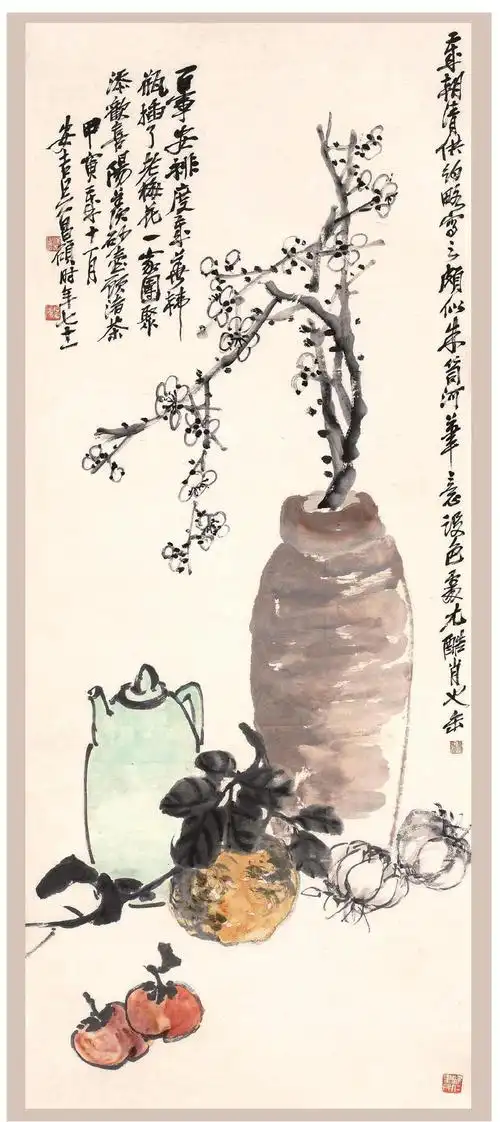 歲朝清供約略寫之頗似朱河筆意設色處尤酷肖也缶
百事安排度歲華
瓶插了老梅花一家團聚
添歡喜陽羨砂壺顧渚茶
甲寅歲十一月
安吉吳昌碩時年七十一